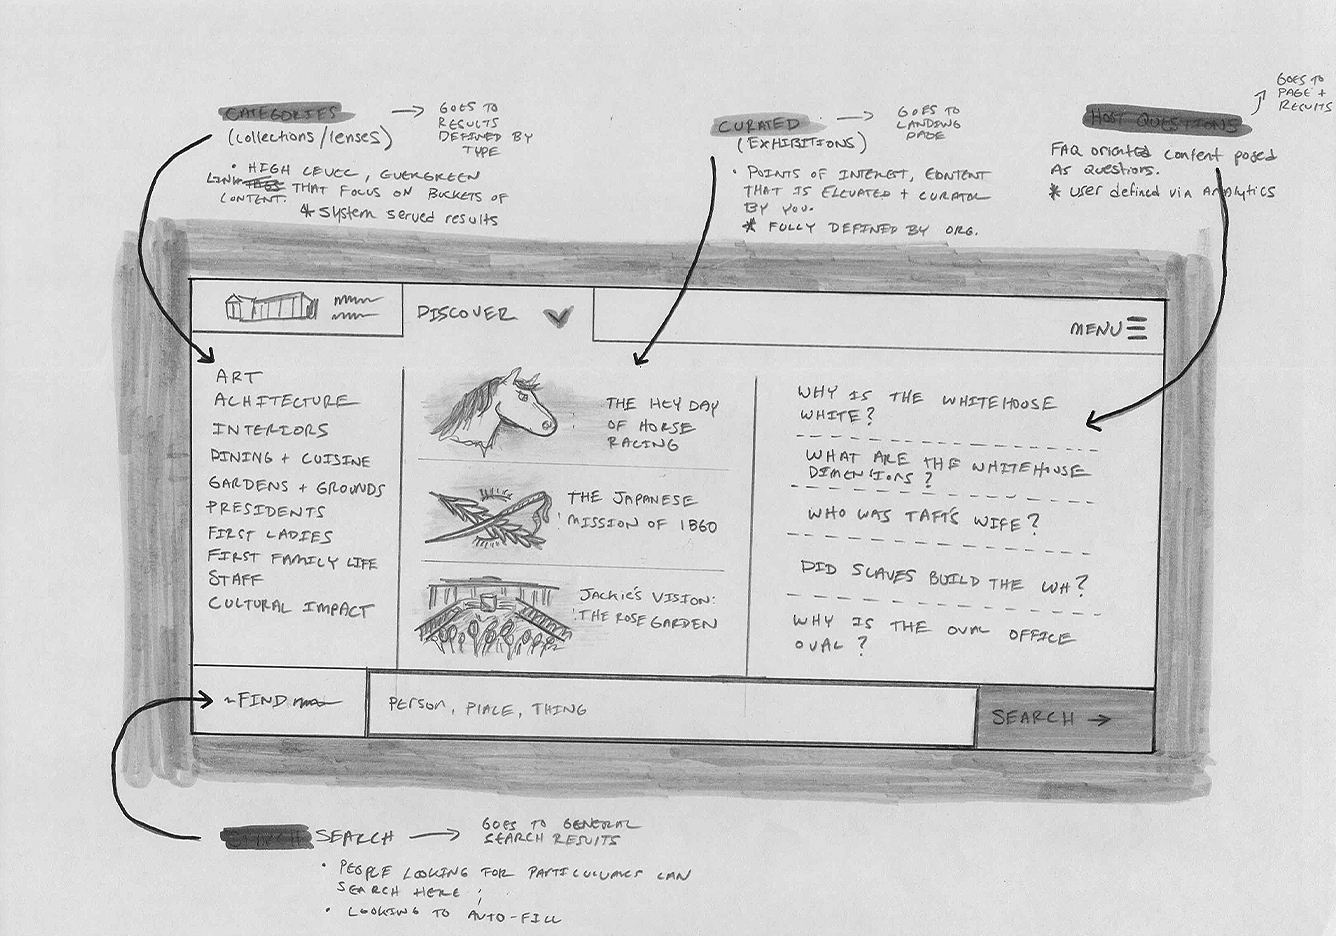 CATEGORIES
(collections/lenses)
→ GOES TO
RESULTS
DEFINED BY
TYPE
• HIGH LEVEL, EVERGREEN
LINK TAGS THAT FOCUS ON BUCKETS OF
CONTENT.
* System served results
CURATED
(EXHIBITIONS)
→ GOES TO
LANDING
PAGE
• POINTS OF INTEREST, CONTENT
THAT IS ELEVATED + CURATED
BY YOU.
* FULLY DEFINED BY ORG.
HOST QUESTIONS
GOES TO
PAGE +
RESULTS
FAQ oriented content posed
As Questions.
* User defined via Analytics
DISCOVER
MENU
ART
ACHITECTURE
INTERIORS
DINING + CUISINE
GARDENS + GROUNDS
PRESIDENTS
FIRST LADIES
FIRST FAMILY LIFE
STAFF
CULTURAL IMPACT
THE HEY DAY
OF HORSE
RACING
THE JAPANESE
MISSION OF 1860
JACKIE'S VISION:
THE ROSE GARDEN
WHY IS THE WHITEHOUSE
WHITE?
WHAT ARE THE WHITEHOUSE
DIMENSIONS?
WHO WAS TAFTS WIFE?
DID SLAVES BUILD THE WH?
WHY IS THE OVAL OFFICE
OVAL?
FIND
PERSON, PLACE, THING
SEARCH →
SEARCH SEARCH → GOES TO GENERAL
SEARCH RESULTS
• PEOPLE LOOKING FOR PARTICULARS CAN
SEARCH HERE;
• LOOKING TO AUTO-FILL